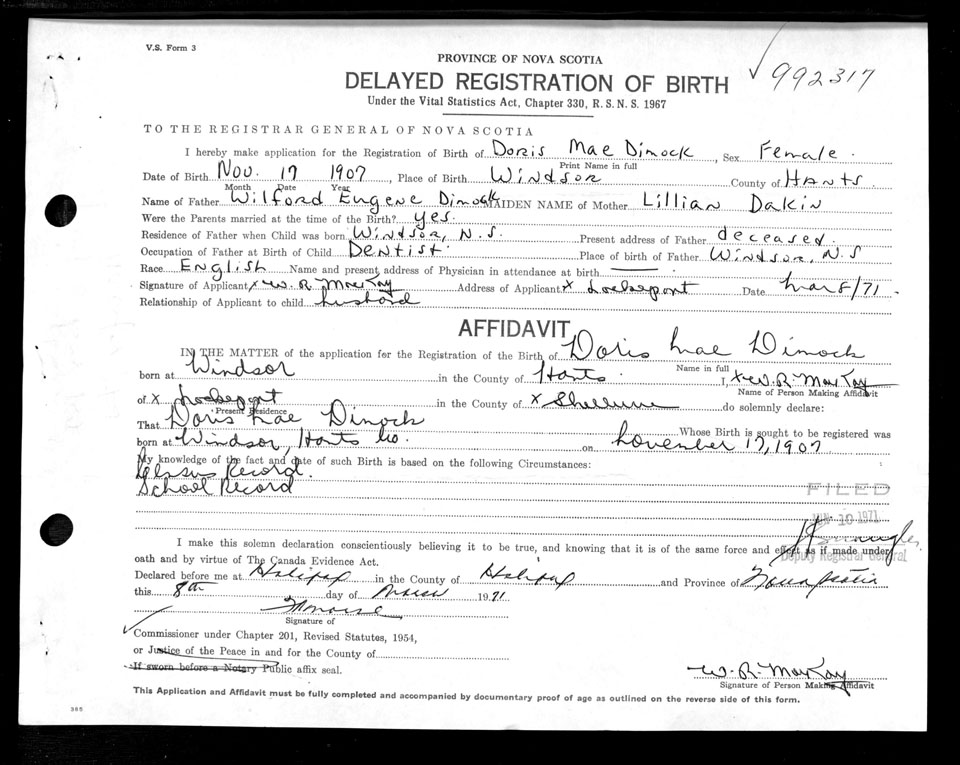 V.S. Form 3
992317
PROVINCE OF NOVA SCOTIA
DELAYED REGISTRATION OF BIRTH
Under the Vital Statistics Act, Chapter 330, R.S.N.S. 1967
TO THE REGISTRAR GENERAL OF NOVA SCOTIA
I hereby make application for the Registration of Birth of Doris Mae Dimock, Sex Female.
Print Name in full
Date of Birth Nov. 17 1907, Place of Birth Windsor County of Hants
Month Date Year
Name of Father Wilford Eugene Dimock MAIDEN NAME of Mother Lillian Dakin
Were the Parents married at the time of the Birth? yes.
Residence of Father when Child was born Windsor, N.S. Present address of Father deceased.
Occupation of Father at Birth of Child Dentist. Place of birth of Father Windsor, N.S
Race English Name and present address of Physician in attendance at birth
Signature of Applicant x W. R. MacKay Address of Applicant x Lockeport Date Mar 8/71.
Relationship of Applicant to child husband
AFFIDAVIT
IN THE MATTER of the application for the Registration of the Birth of Doris Mae Dimock
Name in full
born at Windsor in the County of Hants I, x W. R. MacKay
Name of Person Making Affidavit
of x Lockeport in the County of x Shelburne do solemnly declare:
Present Residence
That Doris Mae Dimock Whose Birth is sought to be registered was
born at Windsor, Hants Co. on November 17, 1907
My knowledge of the fact and date of such Birth is based on the following Circumstances:
Census Record.
School Record
FILED
10 1971
I make this solemn declaration conscientiously believing it to be true, and knowing that it is of the same force and effect as if made under
oath and by virtue of The Canada Evidence Act.
Deputy Registrar General
Declared before me at Halifax in the County of Halifax and Province of Nova Scotia
this 8th day of March 1971
Signature of
Commissioner under Chapter 201, Revised Statutes, 1954,
or Justice of the Peace in and for the County of
If sworn before a Notary Public affix seal.
W. R. MacKay
Signature of Person Making Affidavit
This Application and Affidavit must be fully completed and accompanied by documentary proof of age as outlined on the reverse side of this form.
365